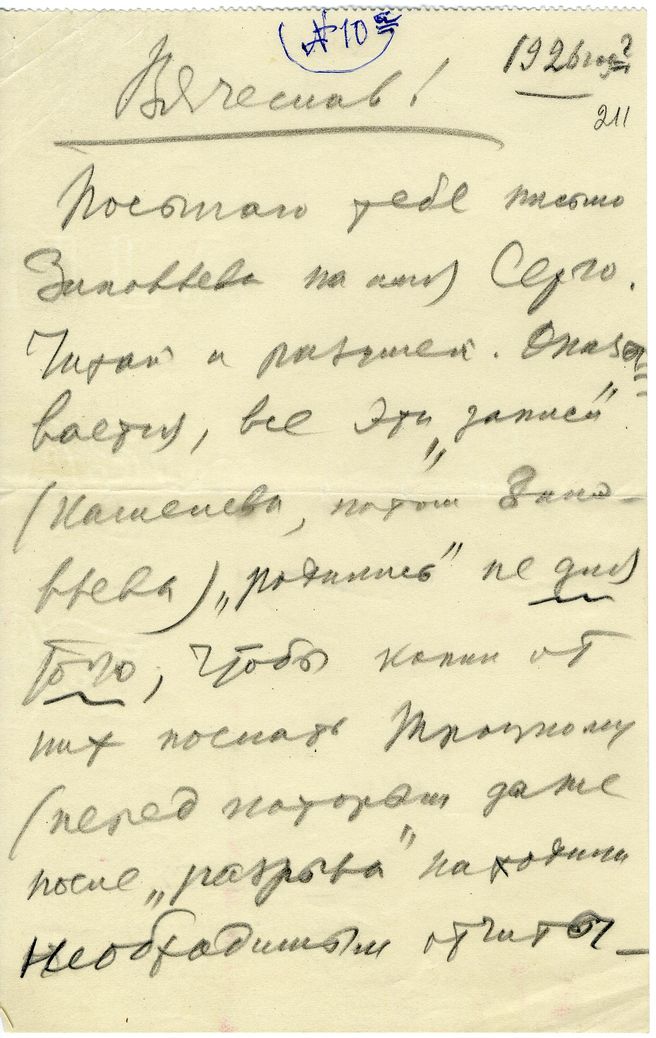 № 10а
1926 год?
211
Вячеслав!
Посылаю тебе письмо
Зиновьева на имя Серго.
Читай и разумей. Оказы
вается, все эти „записи"
(Каменева, потом Зино-
вьева) „родились" не для
того, чтобы копии от
них послать Троцкому
(перед которым даже
после „разрыва" находили
необходимым отчиты-